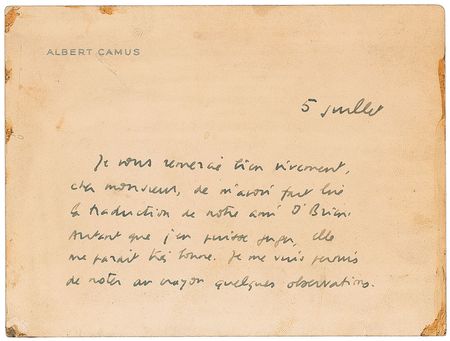 ALBERT CAMUS
5 juillet
Je vous remercie bien vivement,
cher monsieur, de m'avoir fait lire
la traduction de notre ami O'Brien.
Autant que j'en puisse juger, elle
me paraît très bonne. Je me suis permis
de noter au crayon quelques observations.